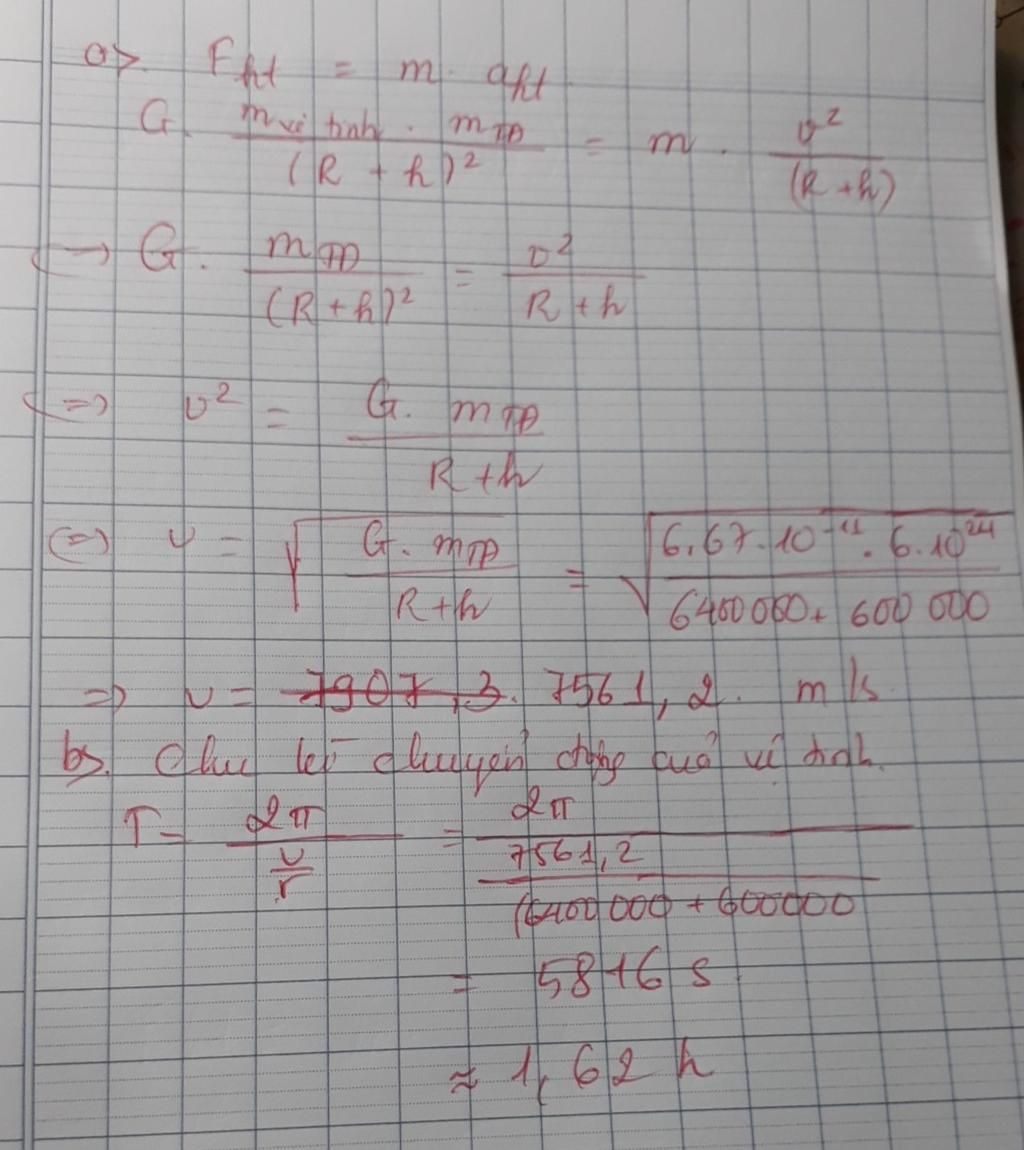 a> F_ht = m . a_ht
G . (m vệ tinh . m_TĐ)/(R + h)² = m . v²/(R + h)
<-> G . m_TĐ/(R + h)² = v²/(R + h)
<=> v² = (G . m_TĐ)/(R + h)
<=> v = √((G . m_TĐ)/(R + h)) = √((6,67 . 10⁻¹¹ . 6 . 10²⁴)/(6400 000 + 600 000))
=> v = 7907,3 . 7561,2 . m/s
b>. Chu kì chuyển động của vệ tinh.
T = 2π/(v/r) = 2π/(7561,2/(6400 000 + 600000
= 5816 s
≈ 1,62 h